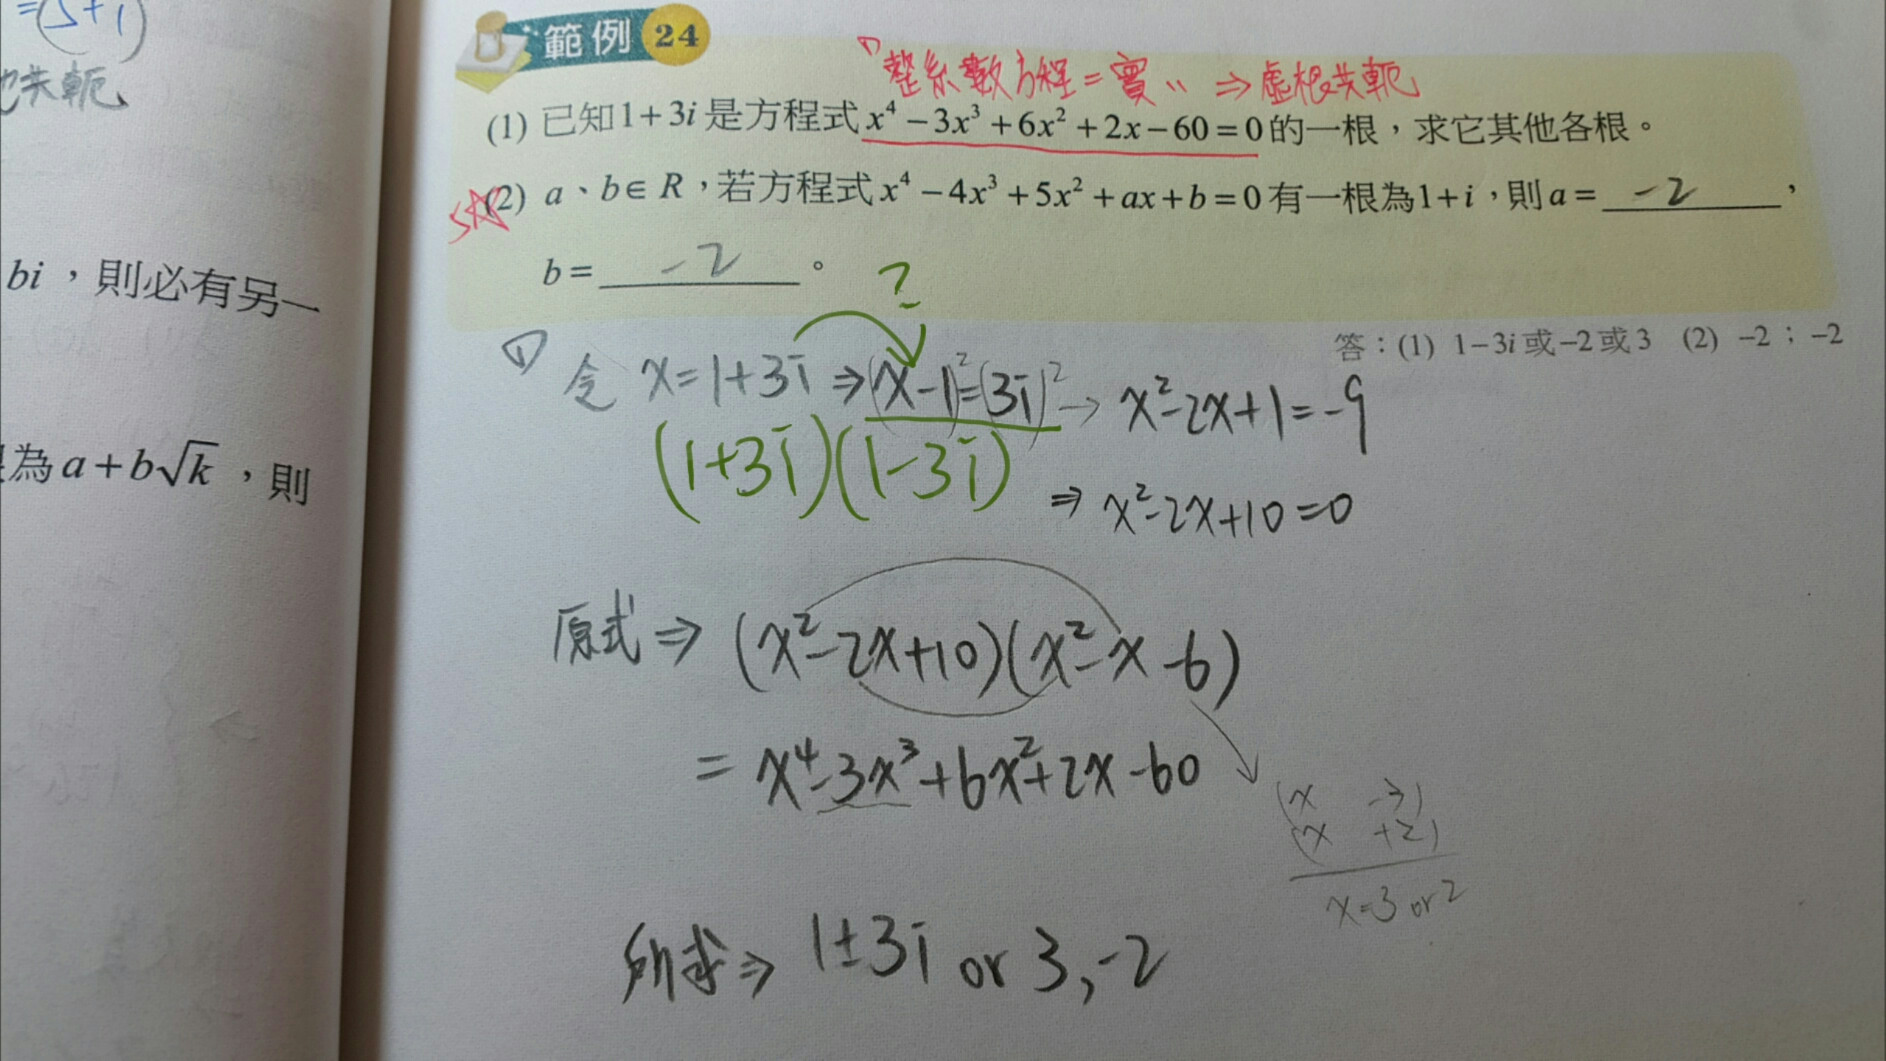 =(5+1)
共軛
bi，則必有另一
為a+b√k，則
範例 24
(1) 整系數方程=實〃⇒虛根共軛
(1) 已知1+3i是方程式x⁴−3x³+6x²+2x−60=0的一根，求它其他各根。
(2) a、b∈R，若方程式x⁴−4x³+5x²+ax+b=0有一根為1+i，則a= -2 ，
b= -2 。
?
答：(1) 1−3i或−2或3 (2) −2；−2
(1) 令 x=1+3i ⇒ (x-1)²=(3i)² → x²-2x+1=-9
(1+3i)(1-3i)
⇒ x²-2x+10=0
原式⇒ (x²-2x+10)(x²-x-6)
= x⁴-3x³+6x²+2x-60
(x -3)
(x +2)
x=3 or 2
所求⇒ 1±3i or 3,-2